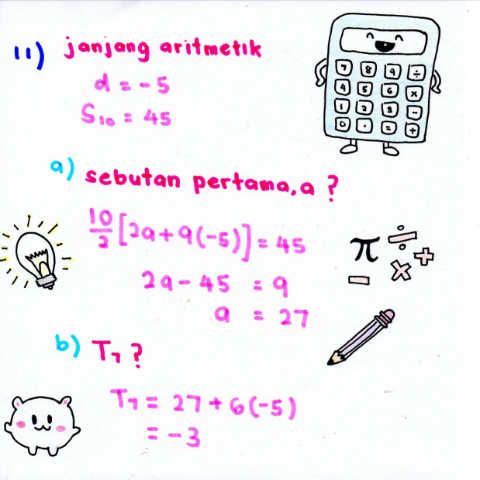 11) janjang aritmetik
d = -5
S₁₀ = 45
a) sebutan pertama, a ?
10/2 [2a + 9(-5)] = 45
2a - 45 = 9
a = 27
b) T₇ ?
T₇ = 27 + 6(-5)
= -3
7 8 9 ÷
4 5 6 ×
1 2 3 -
0 . = +
π ÷ + - ×